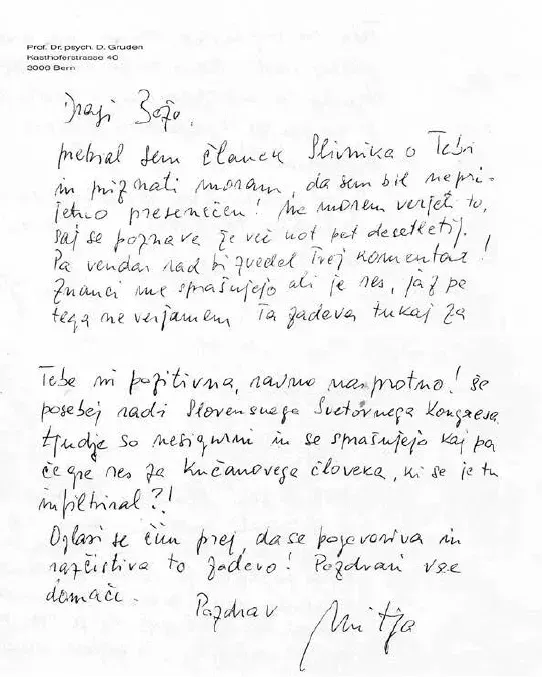 Prof. Dr. psych. D. Gruden
Kasthoferstrasse 40
3000 Bern
Dragi Božo,
prebral sem članek Slivnika o Tebi
in priznati moram, da sem bil nepri-
jetno presenečen! Ne morem verjeti to,
saj se poznava že več kot pet desetletij.
Pa vendar rad bi zvedel Tvoj komentar!
Znanci me sprašujejo ali je res, jaz pa
tega ne verjamem. Ta zadeva tukaj za
Tebe ni pozitivna, ravno nasprotno! še
posebej radi Slovenskega Svetovnega Kongresa.
Ljudje so nesigurni in se sprašujejo kaj pa
če gre res za Kučanovega človeka, ki se je tu
infiltriral?!
Oglasi se čim prej, da se pogovoriva in
razčistiva to zadevo! Pozdravi vse
domače.
Pozdrav
Mitja